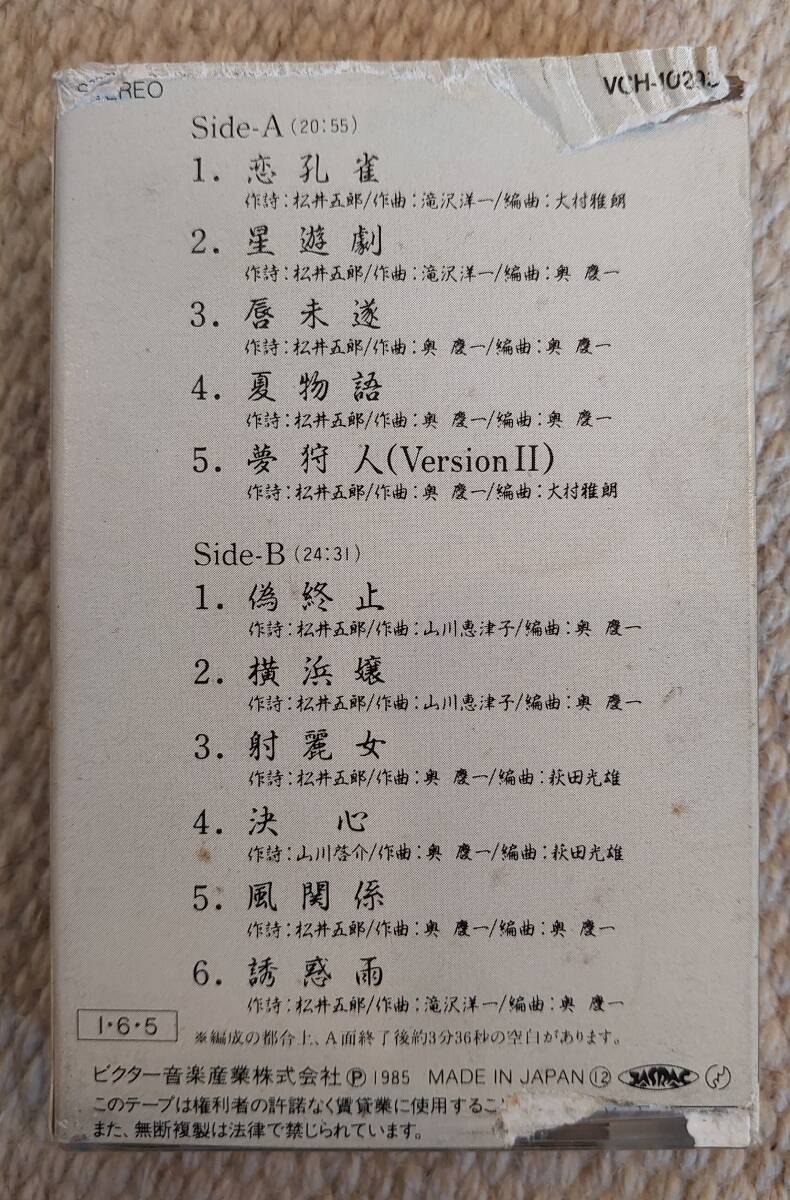 STEREO
VCH-1020
Side-A (20:55)
1. 恋孔雀
作詩:松井五郎/作曲:滝沢洋一/編曲:大村雅朗
2. 星遊劇
作詩:松井五郎/作曲:滝沢洋一/編曲:奥 慶一
3. 唇未遂
作詩:松井五郎/作曲:奥 慶一/編曲:奥 慶一
4. 夏物語
作詩:松井五郎/作曲:奥 慶一/編曲:奥 慶一
5. 夢狩人(Version II)
作詩:松井五郎/作曲:奥 慶一/編曲:大村雅朗
Side-B (24:31)
1. 偽終止
作詩:松井五郎/作曲:山川恵津子/編曲:奥 慶一
2. 横浜嬢
作詩:松井五郎/作曲:山川恵津子/編曲:奥 慶一
3. 射麗女
作詩:松井五郎/作曲:奥 慶一/編曲:萩田光雄
4. 決 心
作詩:山川啓介/作曲:奥 慶一/編曲:萩田光雄
5. 風関係
作詩:松井五郎/作曲:奥 慶一/編曲:奥 慶一
6. 誘惑雨
作詩:松井五郎/作曲:滝沢洋一/編曲:奥 慶一
1・6・5
※編成の都合上、A面終了後約3分36秒の空白があります。
ビクター音楽産業株式会社 Ⓟ 1985 MADE IN JAPAN ⑫ JASRAC
このテープは権利者の許諾なく賃貸業に使用するこ
また、無断複製は法律で禁じられています。